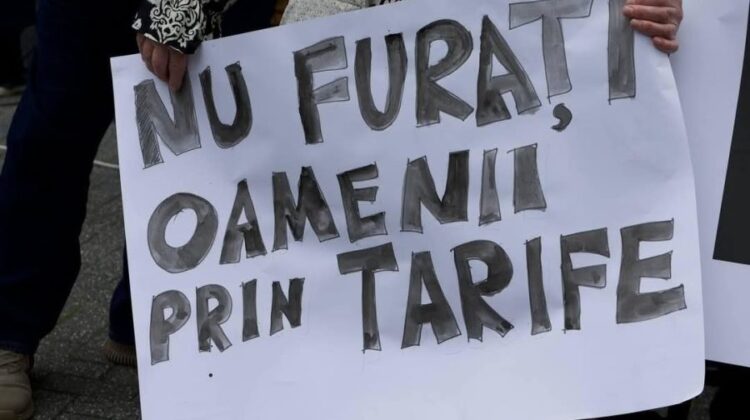 NU FURAȚI
OAMENII
PRIN TARIFE